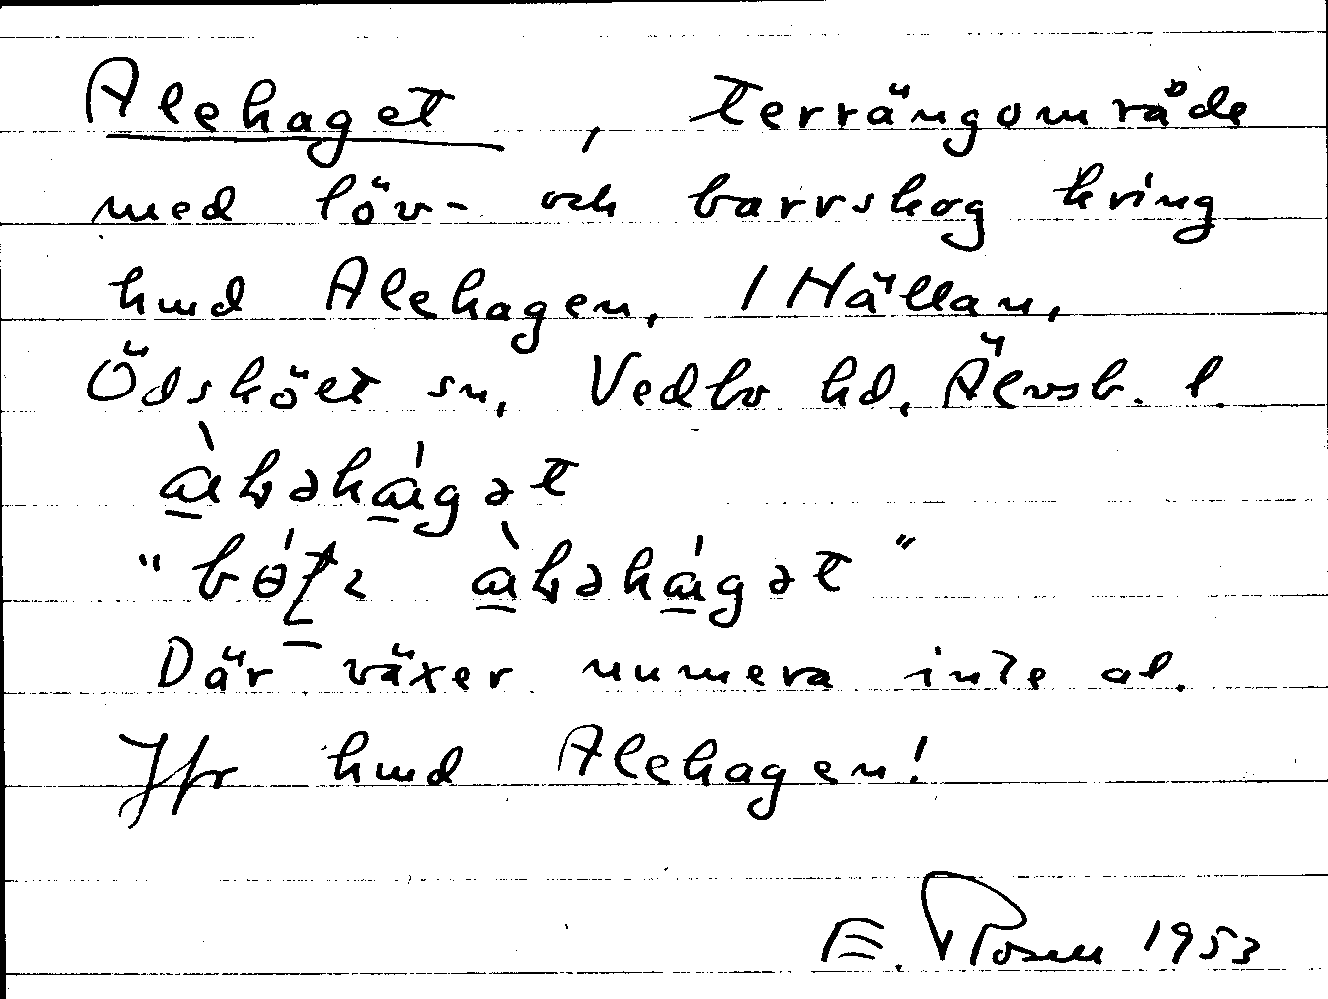 Alehaget, terrängområde
med löv- och barrskog kring
hmd Alehagen, 1 Hällan,
Ödsköet sn, Vedbo hd, Älvsb. l.
Där växer numera inte al.
Jfr hmd Alehagen!
E. Rosell 1953